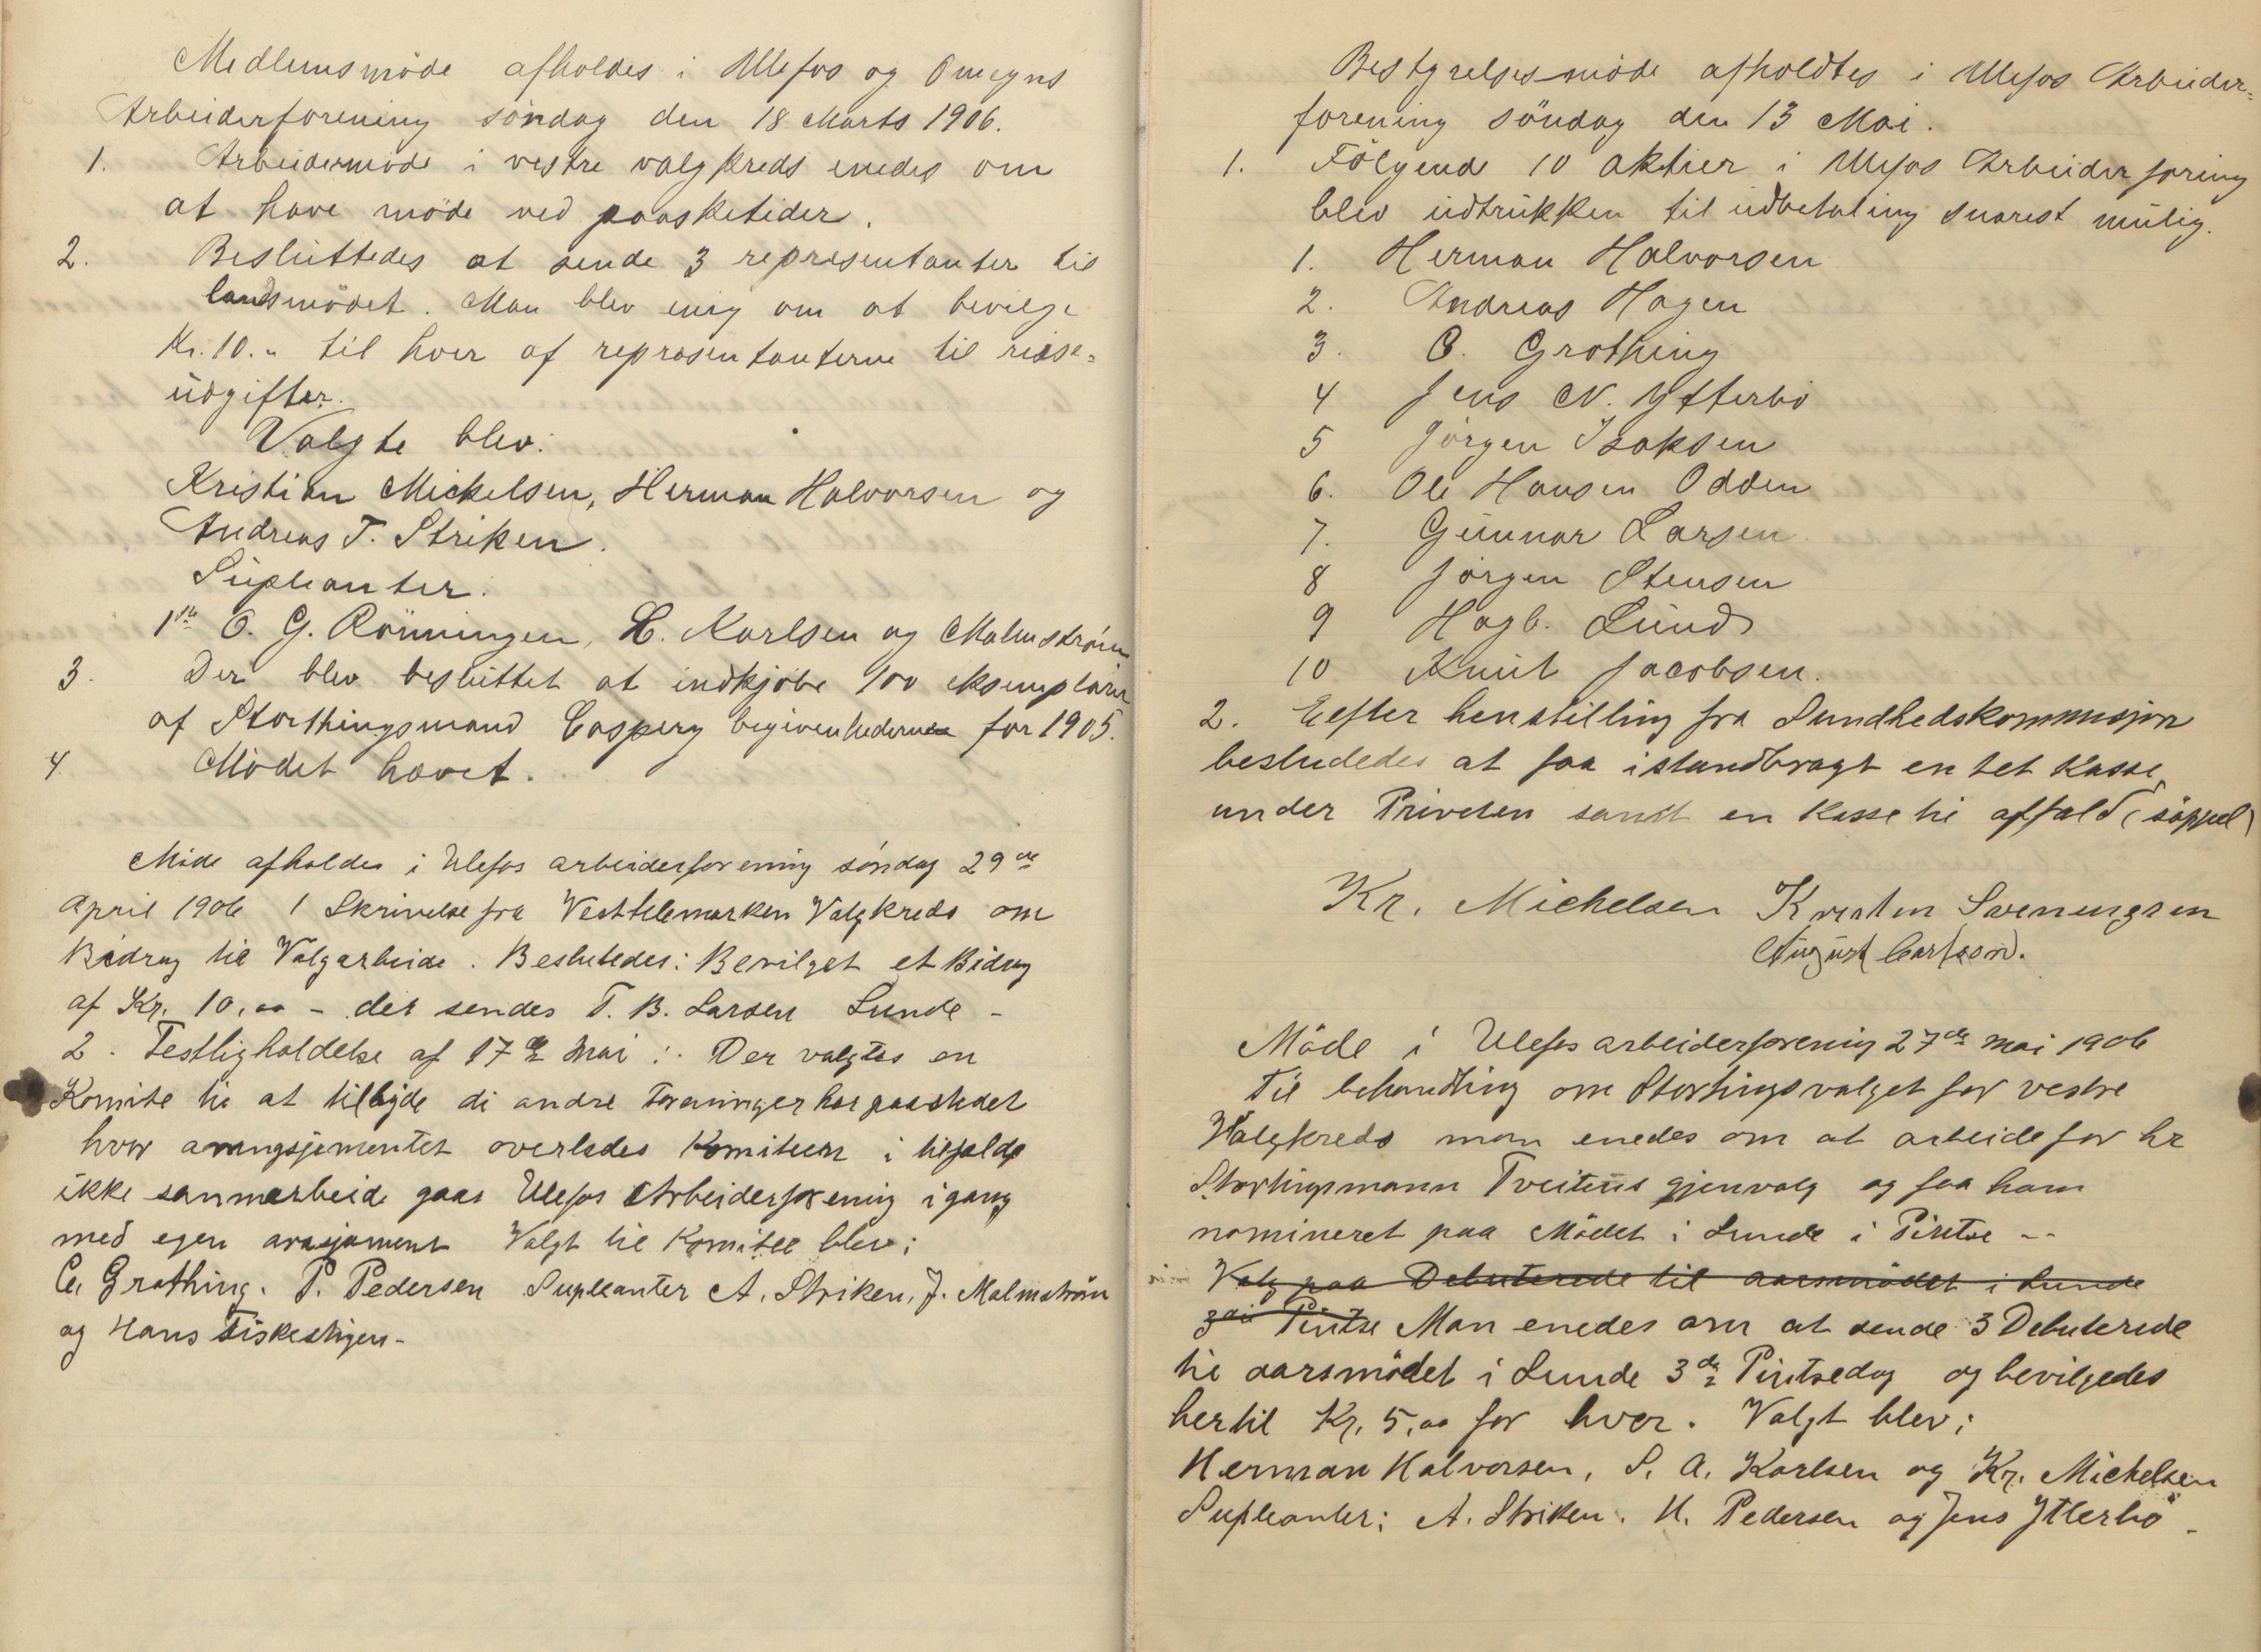 Medlemsmöde afholdes i Ulefos og Omegns
Arbeiderforening söndag den 18 Marts 1906.
1. Arbeidermöde i vestre valgkreds enedes om
at have möde ved paasketider.
2. Besluttedes at sende 3 representanter til
landsmödet. Man blev enig om at bevilge
Kr. 10.- til hver af representanterne til reise-
udgifter.
Valgte blev:
Kristian Mickelsen, Herman Halvorsen og
Andreas T. Striken.
Supleanter:
1ste O. G. Rönningen, L. Karlsen og Malmström
3. Der blev besluttet at indkjöbe 100 eksemplarer
af Storthingsmand Caspery begivenhederne for 1905.
4. Mödet hævet.
Möde afholdes i Ulefos arbeiderforening söndag 29de
April 1906 1 Skrivelse fra Vesttelemarken Valgkreds om
Bidrag til Valgarbeide. Besluttedes: Bevilget et Bidrag
af Kr. 10,00 - det sendes T. B. Larsen Lunde -
2. Festligholdelse af 17de Mai :. Der valgtes en
Komite til at tilbyde di andre Foreninger her paastedet
hvor arangsjementet overlades Komiteen i tilfælde
ikke sammarbeide gaar Ulefos Arbeiderforening igang
med egen arasjement Valgt til Komitee blev:
C. Grothing. P. Pedersen Supleanter A. Striken, J. Malmström
og Hans Fiskestigen -
Bestyrelsesmöde afholdtes i Ulefos Arbeider-
forening söndag den 13 Mai.
1. Fölgende 10 aktier i Ulefos Arbeiderforing
blev udtrukken til udbetaling snarest mulig.
1. Herman Halvorsen
2. Andreas Hagen
3. C. Grothing
4 Jens N. Ytterbö
5 Jörgen Isaksen
6. Ole Hansen Odden
7. Gunnar Larsen
8 Jörgen Stensen
9 Hagb. Lund
10 Knut Jacobsen.
2. Eefter henstilling fra Sundhedskommisjon
besludedes at faa istandbragt en tet Kasse
under Priveten samt en Kasse til affald (söppel)
Kr. Michelsen Kresten Svenungsen
August Carlson.
Möde i Ulefos arbeiderforening 27de mai 1906
Til behandling om Stortingsvalget for vestre
Valgkreds man enedes om at arbeide for hr
Stortingsmann Tveitens gjenvalg og faa ham
nomineret paa Mödet i Lunde i Pintse --
Valg paa Debuterede til aarsmödet i Lunde
3die Pintse Man enedes om at sende 3 Debuterede
til aarsmödet i Lunde 3de Pintsedag og bevilgedes
hertil Kr. 5,00 for hver. Valgt blev:
Herman Halvorsen, S. A. Karlsen og Kr. Michelsen
Supleanter: A. Striken. H. Pedersen og Jens Ytterbö -